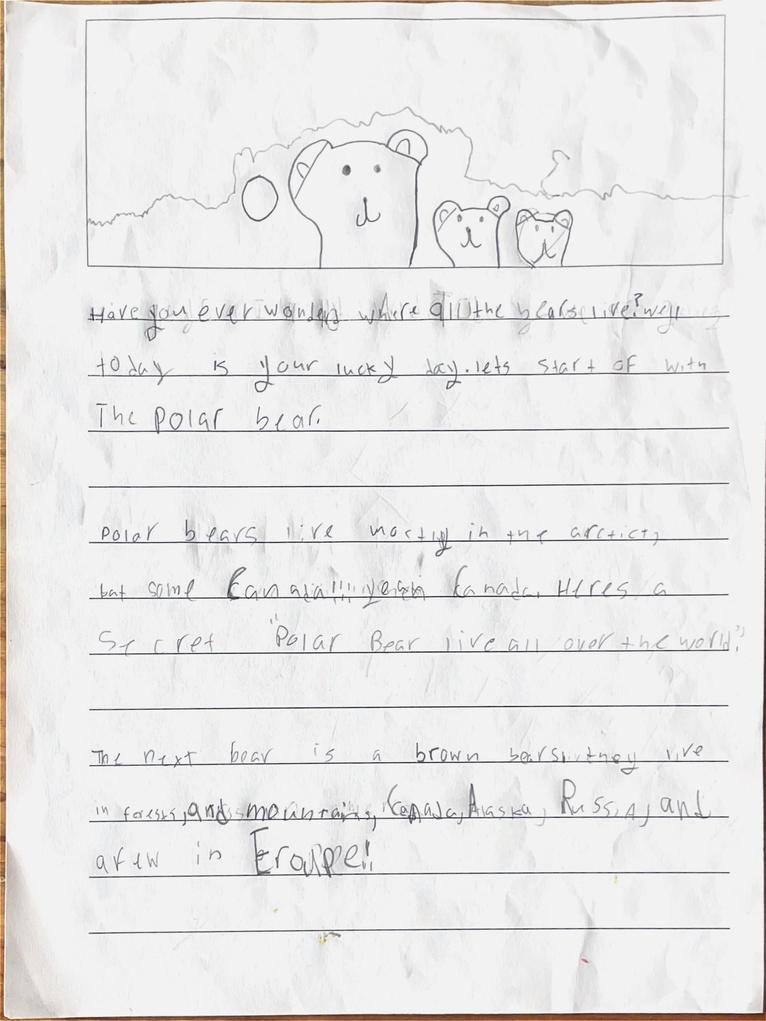 Have you ever wonderd where all the bears live? Well
today is your lucky day. lets start of with
The Polar bear.
Polar bears live mostly in the arctict,
but some Canada!!!! yeah Canada. Heres a
Secret "Polar Bear live all over the world."
The next bear is a brown bears, they live
in forests, and mountains, Canada, Alaska, Russia, and
a few in Eroupe!